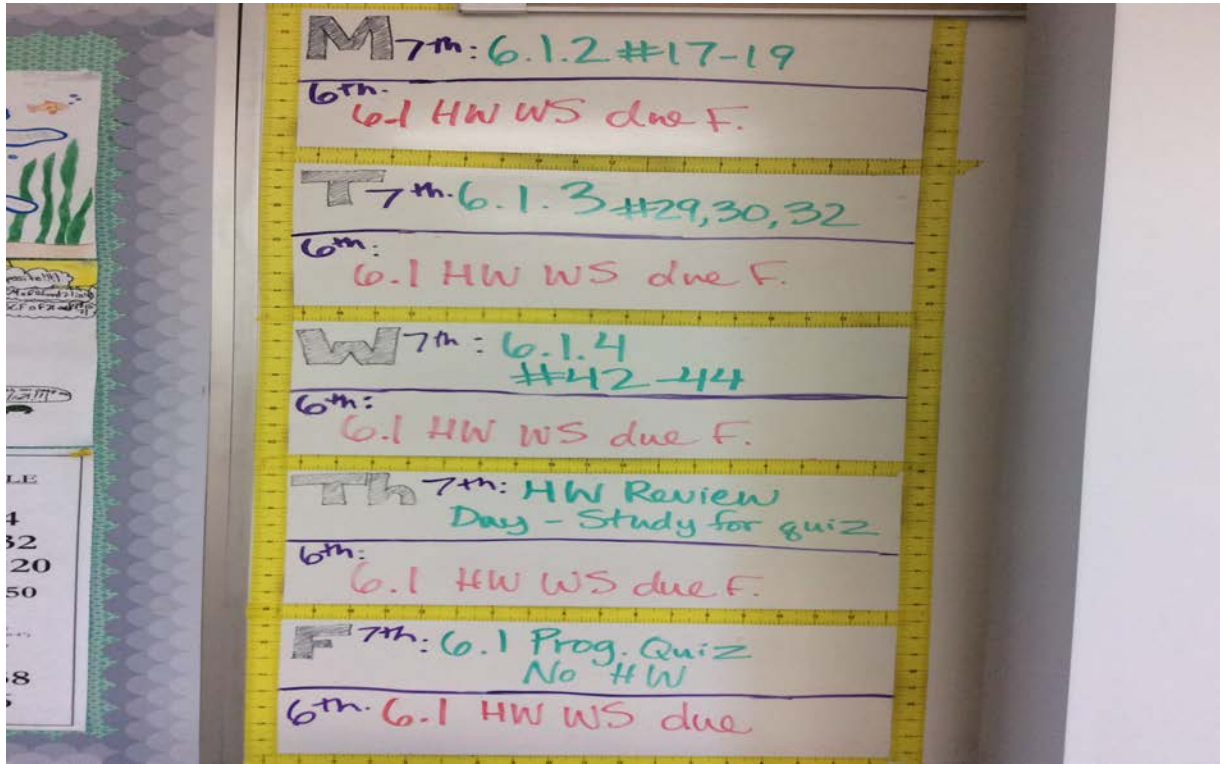 M 7th: 6.1.2 #17-19
6th.
6.1 HW WS due F.
T 7th. 6.1.3 #29,30,32
6th:
6.1 HW WS due F.
W 7th: 6.1.4
#42-44
6th:
6.1 HW WS due F.
Th 7th: HW Review
Day - Study for quiz
6th:
6.1 HW WS due F.
F 7th: 6.1 Prog. Quiz
No HW
6th. 6.1 HW WS due
LE
4
32
20
50
8